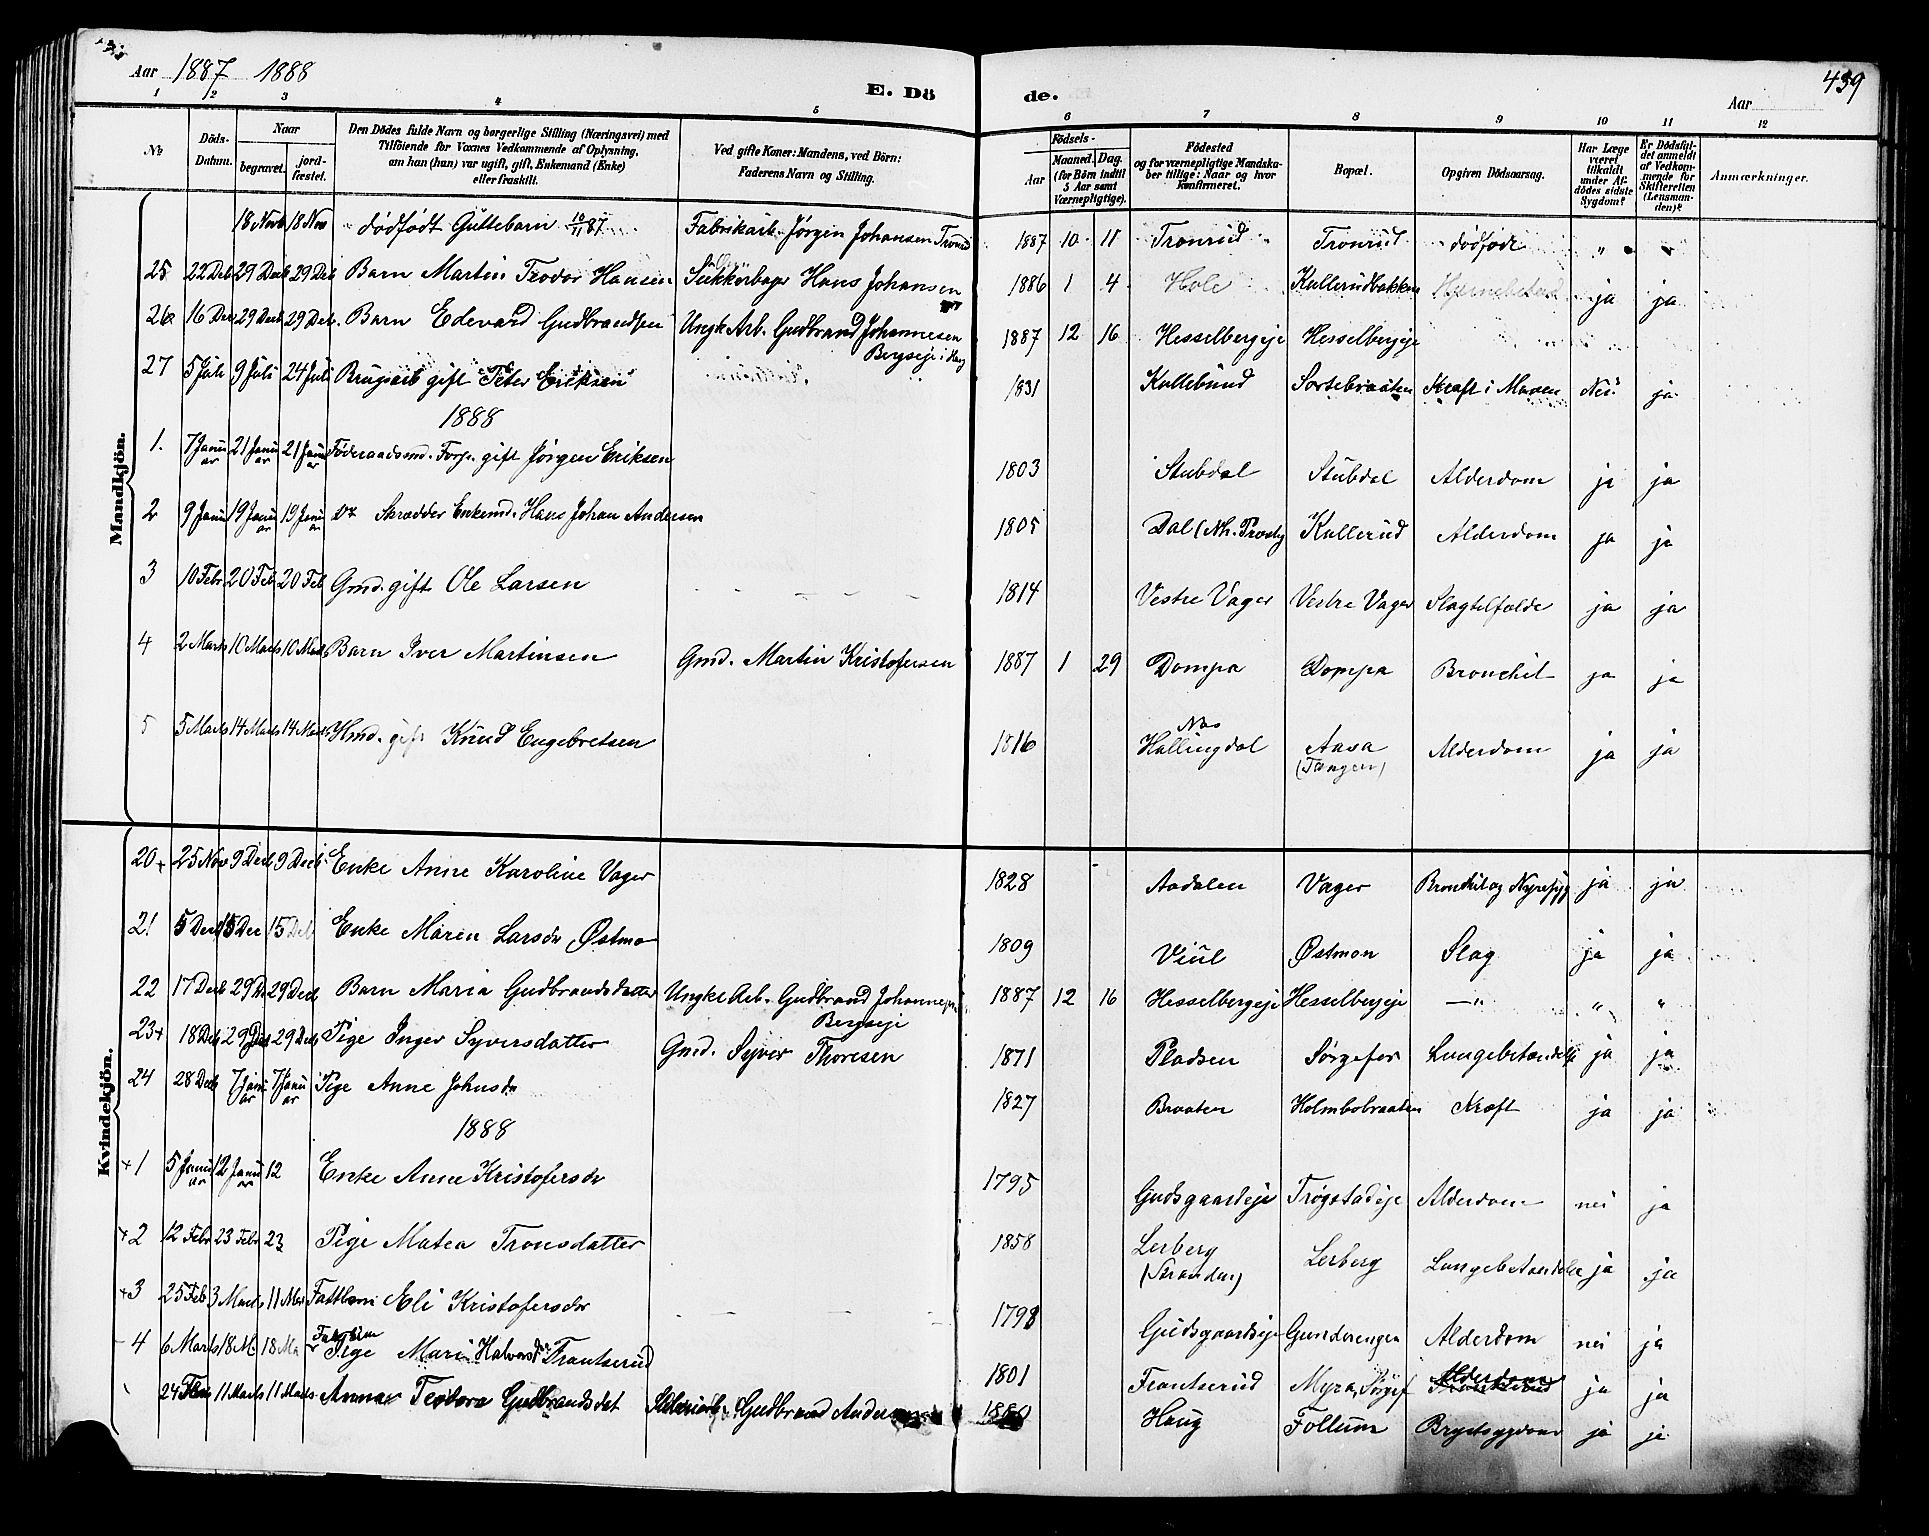 Aar 1887 1888
E. Dö de.
Aar
459
1 2 3 4 5 6 7 8 9 10 11 12
No
Döds-Datum.
Naar
begravet.
jord-fæstet.
Den Dödes fulde Navn og borgerlige Stilling (Næringsvei) med Tilföiende for Voxnes Vedkommende af Oplysning, om han (hun) var ugift, gift, Enkemand (Enke) eller fraskilt.
Ved gifte Koner: Mandens, ved Börn: Faderens Navn og Stilling.
Födsels-
Aar
Maaned. Dag. (for Börn indtil 5 Aar samt Værnepligtige).
Födested og for værnepligtige Mandskaber tillige: Naar og hvor konfirmeret.
Bopæl.
Opgiven Dödsaarsag.
Har Læge været tilkaldt under Afdödes sidste Sygdom?
Er Dödsfaldet anmeldt af Vedkommende for Skifteretten (Lensmanden)?
Anmærkninger.
Mandkjön.
18 Novb 18 Nov dödfödt Guttebarn 10/11 87 Fabrikarb. Jørgen Johansen Tronrud 1887 10 11 Tronrud Tronrud dödfödt " "
25 22 Deb 29 Decb 29 Deb Barn Martin Teodor Hansen Sukkerbager Hans Johansen 1886 1 4 Hole Kullerudbakken ja ja
26 16 Dec 29 Decb 29 Deb. Barn Edevard Gudbrandsen Ungk Arb. Gudbrand Johannesen Bergseje i Haug 1887 12 16 Hesselbergeje Hesselbergeje
27 5 Juli 9 Juli 24 Juli Brugsarb gift Peter Eriksen 1831 Kullebund Sortebraaten Kræft i Maven Nei ja
1888
1. 7 Januar 21 Januar 21 Januar Föderaadsmd. Forp. gift Jørgen Eriksen 1803 Stubdal Stubdal Alderdom ja ja
2 9 Januar 19 Januar 19 Januar Skrædder Enkemd. Hans Johan Andersen 1805 Dal (Nh. Præstg Kullerud Alderdom ja ja
3 10 Febr 20 Feb 20 Feb Gmd. gift Ole Larsen 1814 Vestre Vager Vestre Vager Slagtilfælde ja ja
4 2 Marts 10 Marts 10 Marts Barn Iver Martinsen Gmd. Martin Kristofersen 1887 1 29 Dompa Dompa Bronchit ja ja
5 5 Marts 14 Marts 14 Marts Hmd. gift Knud Engebretsen 1816 Nes Hallingdal Aasa (Tangen) Alderdom ja ja
Kvindekjön.
20+ 25 Nov 9 Decb 9 Decb Enke Anne Karoline Vager 1828 Aadalen Vager Bronchit og Nyresyg ja ja
21 5 Decb 15 Dec 15 Deb Enke Maren Larsdr Østmo 1809 Viul Østmon Slag ja ja
22 17 Decb 29 Dec 29 Decb Barn Maria Gudbrandsdatter Ungkl Arb. Gudbrand Johannesen Bergseje 1887 12 16 Hesselbergeje Hesselbergeje —" " "
23+ 18 Decb 29 Decb 29 Decb Pige Inger Syversdatter Gmd. Syver Thoresen 1871 Pladsen Sørgefos Lungebetændelse ja ja
24 28 Decb 7 Januar 7 Januar Pige Anne Johnsdr 1827 Braaten Holmbobraaten Kræft ja ja
1888
+1 5 Januar 12 Januar 12 Enke Anne Kristofersdr 1795 Gudsgaardeje Trøgstadeje Alderdom nei ja
+2 12 Febr 23 Febr 23 Pige Matea Tronsdatter 1858 Lerberg (Stranden) Lerberg Lungebetændelse ja ja
+3 25 Feb 3 Marts 11 Mar Fattlem Eli Kristofersdr 1798 Gudsgaardseje Gunderengen Alderdom nei ja
4 6 Marts 18 M 18 Ma Fattlem Pige Mari Halvorsdr Frantserud 1801 Frantserud Myra, Sørgef Alderdom ja ja
24 Feb 11 Marts 11 Marts Anna Teodora Gudbrandsdat Gudbrand Anders Haug Follum Brystsygdom ja ja